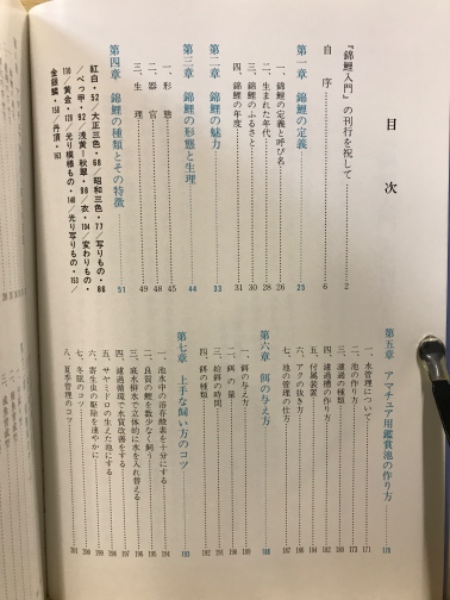 目次
『錦鯉入門』の刊行を祝して 2
自序 6
第一章 錦鯉の定義 23
一、錦鯉の定義と呼び名 26
二、生まれた年代 28
三、錦鯉のふるさと 30
四、錦鯉の年度 31
第二章 錦鯉の魅力 33
第三章 錦鯉の形態と生理 44
一、形態 45
二、器官 48
三、生理 49
第四章 錦鯉の種類とその特徴 51
紅白・52/大正三色・68/昭和三色・77/写りもの・86
/べっ甲・92/浅黄―秋翠・98/衣・104/変わりもの・
110/黄金・128/光り模様もの・140/光り写りもの・153/
金銀鱗・158/丹頂・163
第五章 アマチュア用鑑賞池の作り方 170
一、水管理について 171
二、池の作り方 173
三、濾過の種類 180
四、濾過槽の作り方 182
五、付属装置 184
六、アクの抜き方 186
七、池の管理の仕方 187
第六章 餌の与え方 188
一、餌の与え方 189
二、餌の量 190
三、給餌の時間 191
四、餌の種類 192
第七章 上手な飼い方のコツ 193
一、池水中の溶存酸素を十分にする 194
二、良質の鯉を数少なく飼う 195
三、底水柳水で立体的に水を入れ替える 196
四、濾過循環で水質改善をする 196
五、サヤミドロの生えた池にする 198
六、寄生虫の駆除を速やかに 199
七、冬眠のコツ 200
八、夏季管理のコツ 201